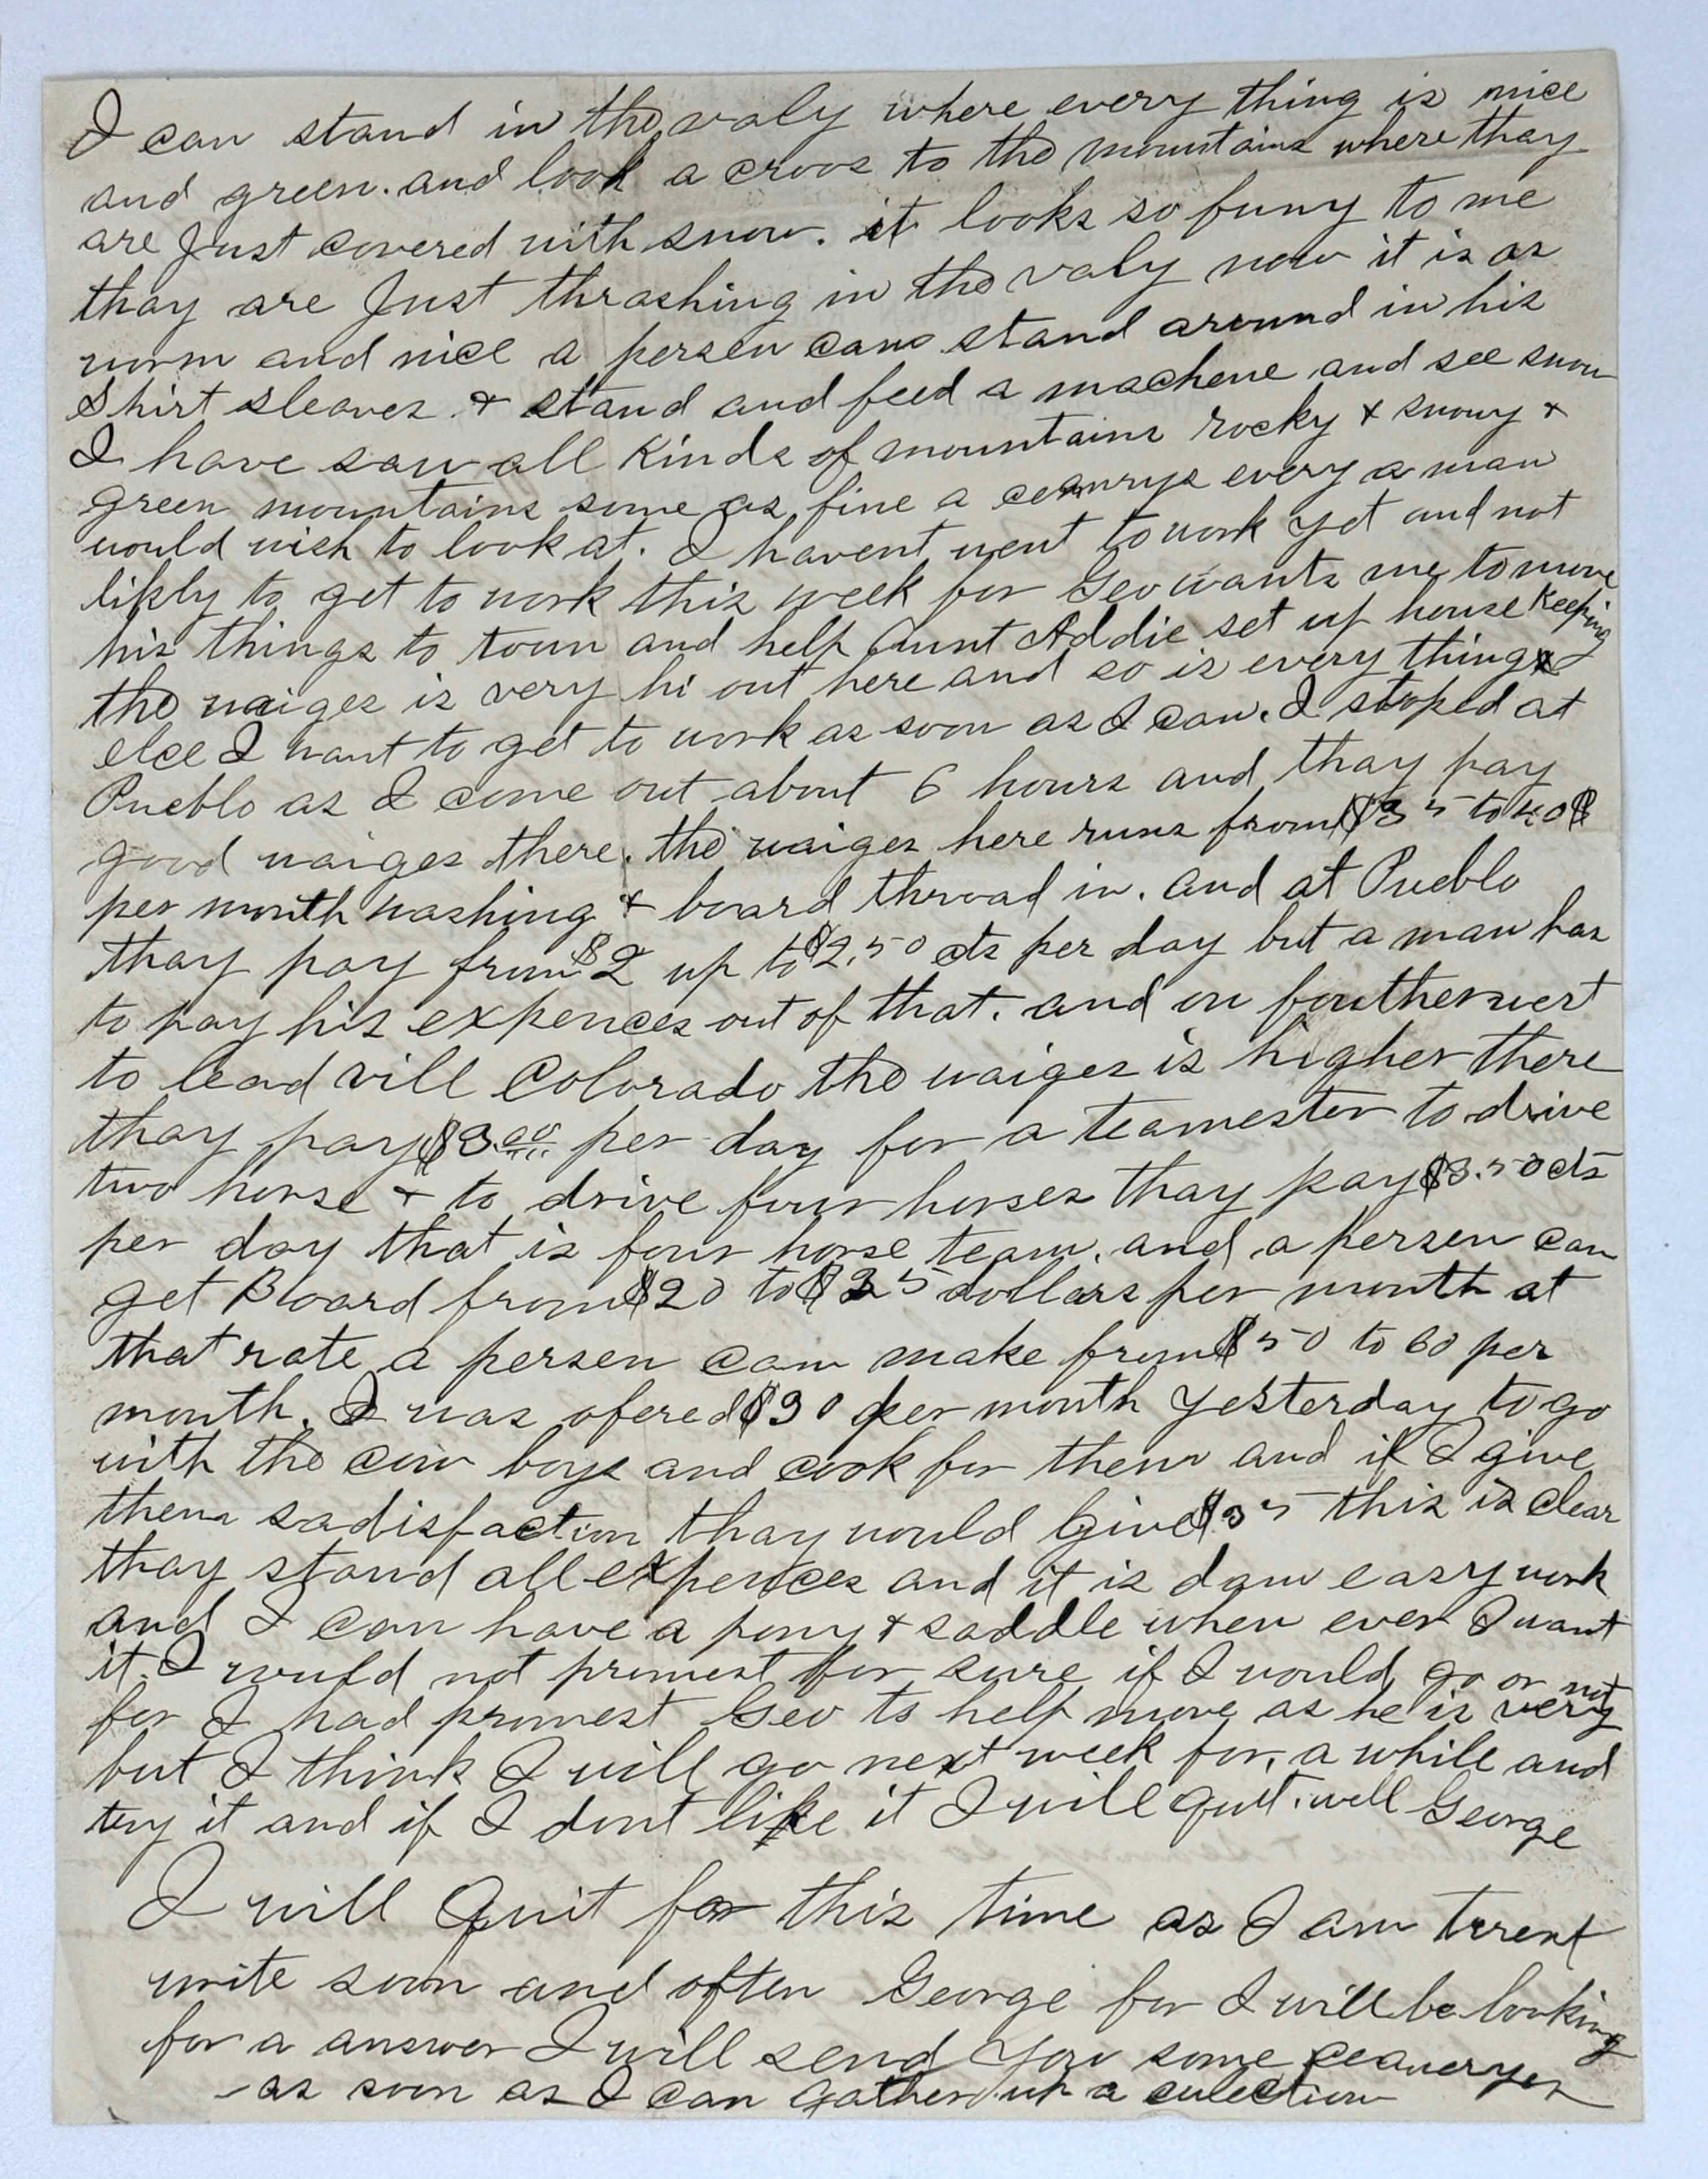 I can stand in the valy where every thing is nice
and green. and look a cross to the mountains where thay
are Just covered with snow. it looks so funy to me
thay are Just thrashing in the valy now it is as
worm and nice a persen can stand around in his
Shirt sleaves & stand and feed a machene and see snow
I have saw all Kinds of mountains rocky & snowy &
green mountains some as fine a cenurys every a man
would wish to look at. I havent went to work yet and not
likly to get to work this week for Geo wants me to move
his things to town and help Aunt Addie set up house Keeping
the waiges is very hi out here and so is every thing
else I want to get to work as soon as I can. I stoped at
Pueblo as I come out about 6 hours and thay pay
good waiges there. the waiges here runs from $35 to 40$
per month washing & board throad in. and at Pueblo
thay pay from $2 up to $2.50 cts per day but a man has
to pay his expences out of that. and on fouther west
to lead vill Colorado the waiges is higher there
thay pay $3.00 per day for a teamester to drive
two horse & to drive four horses thay pay $3.50 cts
per day that is four horse team. and a persen can
get Board from $20 to $25 dollars per month at
that rate a persen can make from $50 to 60 per
month. I was ofered $30 per month yesterday to go
with the cow boys and cook for them and if I give
them sadisfaction thay would Give $35 this is clear
thay stand all expences and it is dam easy work
and I can have a pony & saddle when ever I want
it. I would not promest for sure if I would go or not
for I had promest Geo to help move as he is very
but I think I will go next week for a while and
try it and if I dont like it I will quit. well George
I will Quit for this time as I am
write soon and often George for I will be looking
for a answer I will send you some
as soon as I can gather up a culection